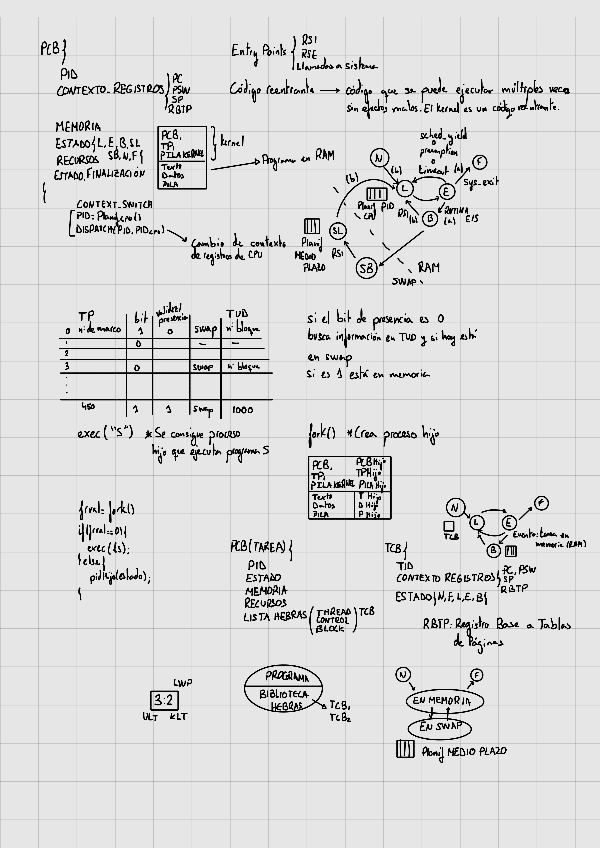 PCB}
PID
CONTEXTO_REGISTROS} PC
PSW
SP
RBTP
MEMORIA
ESTADO{L, E, B, SL
SB, N, F{
RECURSOS
ESTADO_FINALIZACIÓN
{
PCB,
TP,
PILA KERNEL
kernel
Texto
Datos
PILA
Programa en RAM
CONTEXT_SWITCH
PID = Planif_CPU()
DISPATCH(PID, PID_CPU)
Cambio de contexto
de registros de CPU
Entry Points { RSI
RSE
Llamadas a sistema
Código reentrante → código que se puede ejecutar múltiples veces
sin efectos malos. El kernel es un código reentrante.
sched_yield
o
preemption
o
timeout (a)
N
(b)
L
E
F
Sys_exit
(b)
Planif PID
CPU
RSI
(b)
B
RUTINA
(a) E/S
SL
Planif
MEDIO
PLAZO
RSI
SB
RAM
SWAP
TP bit validez/presencia TUD
0 nº de marco 1 0 swap nº bloque
1 0 — —
2
3 0 swap nº bloque
.
.
.
450 1 1 swap 1000
si el bit de presencia es 0
busca información en TUD y si hay está
en swap
si es 1 está en memoria
exec("S") * Se consigue proceso
hijo que ejecuta programa S
fork() * Crea proceso hijo
PCB, PCB Hijo
TP, TP Hijo
PILA KERNEL PILA Hijo
Texto T Hijo
Datos D Hijo
PILA P Hijo
frval = fork()
if(frval==0){
exec(ls);
}else{
pidHijo(estado);
{
N
L
E
F
TCB
B
Evento: tarea en
memoria (RAM)
PCB(TAREA){
PID
ESTADO
MEMORIA
RECURSOS
LISTA HEBRAS (THREAD
CONTROL
BLOCK) TCB
TCB{
TID
CONTEXTO REGISTROS} PC, PSW
SP
RBTP
ESTADO{N, F, L, E, B{
RBTP: Registro Base a Tablas
de Páginas
LWP
3:2
ULT KLT
PROGRAMA
BIBLIOTECA
HEBRAS
TCB1
TCB2
N
F
EN MEMORIA
EN SWAP
Planif MEDIO PLAZO